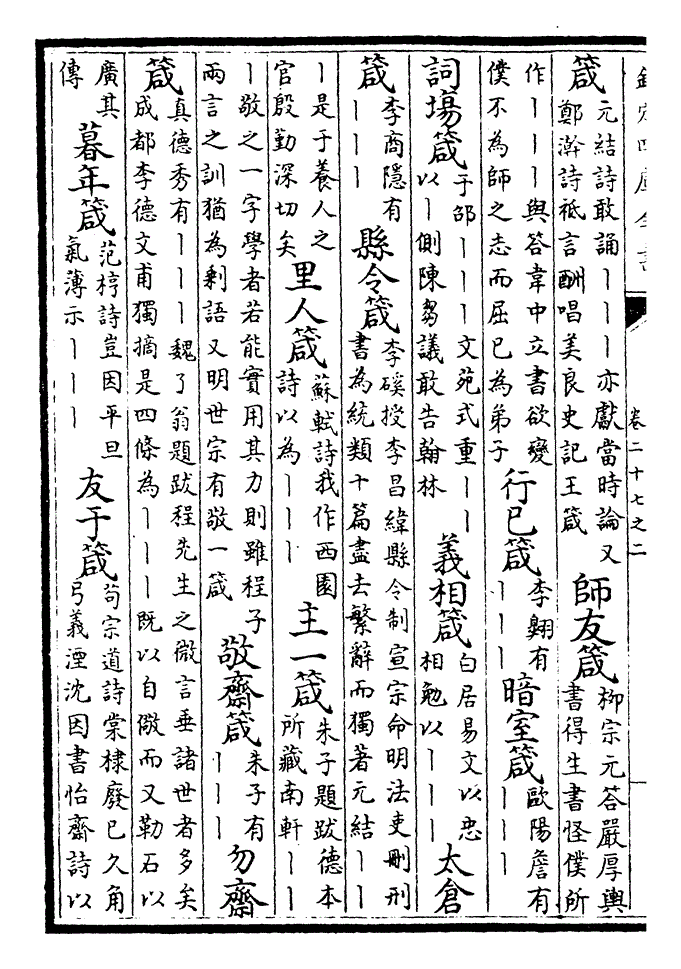 卷二十七之二
箴元結詩敢誦丨丨丨亦獻當時論又鄭澣詩祗言酬唱美良史記王箴師友箴柳宗元答嚴厚輿書得生書怪僕所
作丨丨丨與答韋中立書欲變僕不為師之志而屈已為弟子行已箴李翱有丨丨丨暗室箴歐陽詹有丨丨丨
詞塲箴于邵丨丨丨文苑式重丨丨以丨側陳芻議敢告翰林義相箴白居易文以忠相勉以丨丨丨太倉
箴李商隱有丨丨丨縣令箴李磎授李昌緯縣令制宣宗命明法吏刪刑書為統類十篇盡去繁辭而獨著元結丨丨
丨是于養人之官殷勤深切矣里人箴蘇軾詩我作西園詩以為丨丨丨主一箴朱子題跋德本所藏南軒丨丨
丨敬之一字學者若能實用其力則雖程子兩言之訓猶為剩語又明世宗有敬一箴敬齋箴朱子有丨丨丨勿齋
箴真德秀有丨丨丨魏了翁題跋程先生之微言垂諸世者多矣成都李德文甫獨摘是四條為丨丨丨既以自儆而又勒石以
廣其傳暮年箴范梈詩豈因平旦氣薄示丨丨丨友于箴苟宗道詩棠棣廢已久角弓義湮沈因書怡齋詩以